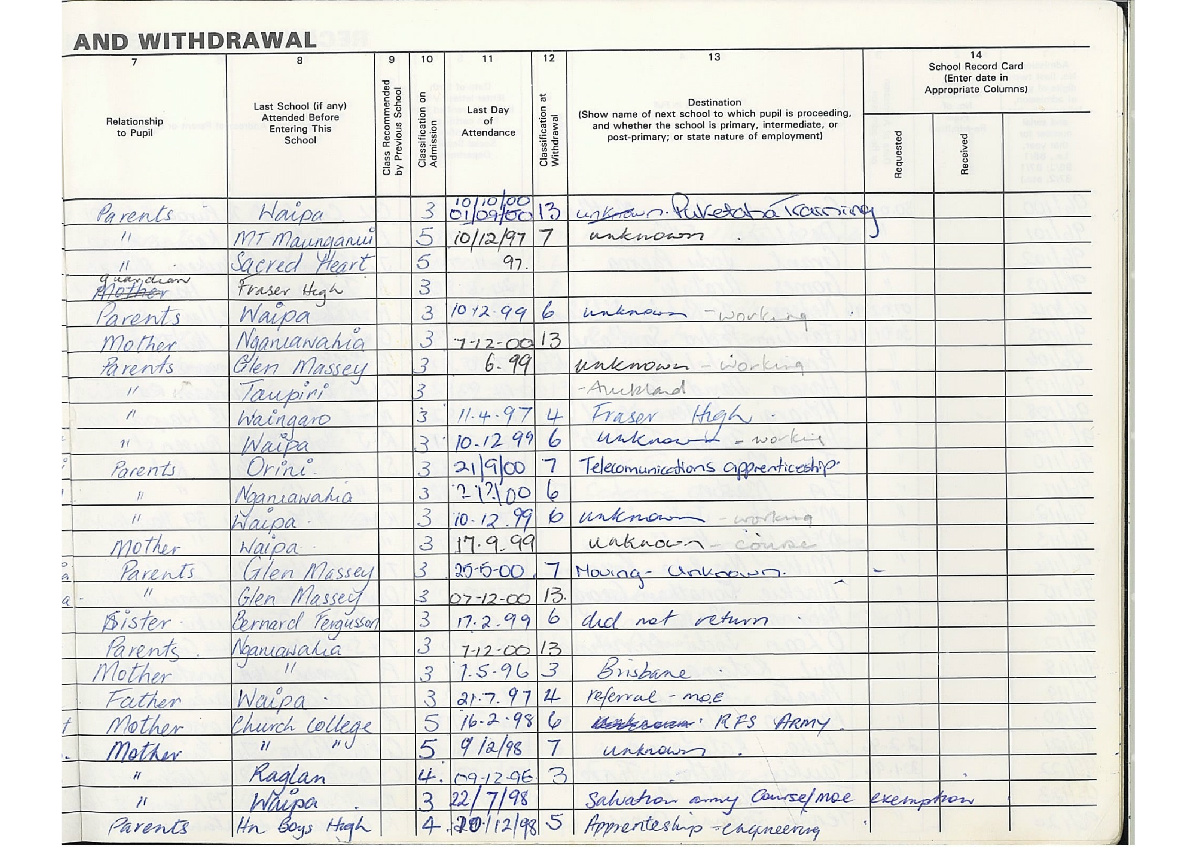 AND WITHDRAWAL
7 8 9 10 11 12 13 14
Relationship to Pupil
Last School (if any) Attended Before Entering This School
Class Recommended by Previous School
Classification on Admission
Last Day of Attendance
Classification at Withdrawal
Destination (Show name of next school to which pupil is proceeding, and whether the school is primary, intermediate, or post-primary; or state nature of employment)
School Record Card (Enter date in Appropriate Columns)
Requested
Received
10/10/00
Parents Waipa 3 01/09/00 13 unknown. Puketaha Training
" MT Maunganui 5 10/12/97 7 unknown
" Sacred Heart 5 97.
guardian
Mother Fraser High 3
Parents Waipa 3 10.12.99 6 unknown - working
Mother Ngaruawahia 3 7-12-00 13
Parents Glen Massey 3 6.99 unknown - working
" Taupiri 3 -Auckland
" Waingaro 3 11.4.97 4 Fraser High
" Waipa 3 10.12 99 6 unknown - working
Parents Orini 3 21/9/00 7 Telecomunications apprenticeship
" Ngaruawahia 3 ?/?/00 6
" Waipa 3 10.12.99 6 unknown - working
Mother Waipa 3 17.9.99 unknown - course
Parents Glen Massey 3 25-5-00 7 Moving - Unknown.
" Glen Massey 3 07-12-00 13.
Sister Bernard Fergusson 3 17.2.99 6 did not return
Parents Ngaruawahia 3 7-12-00 13
Mother " 3 1.5.96 3 Brisbane
Father Waipa 3 21.7.97 4 referral - moE
Mother Church College 5 16.2.98 6 unknown RFS ARMY
Mother " " 5 9/12/98 7 unknown
" Raglan 4. 09-12-96 3
" Waipa 3 22/7/98 Salvation army Course/moe exemption
Parents Hn Boys High 4 10/12/98 5 Apprenteship - engineering